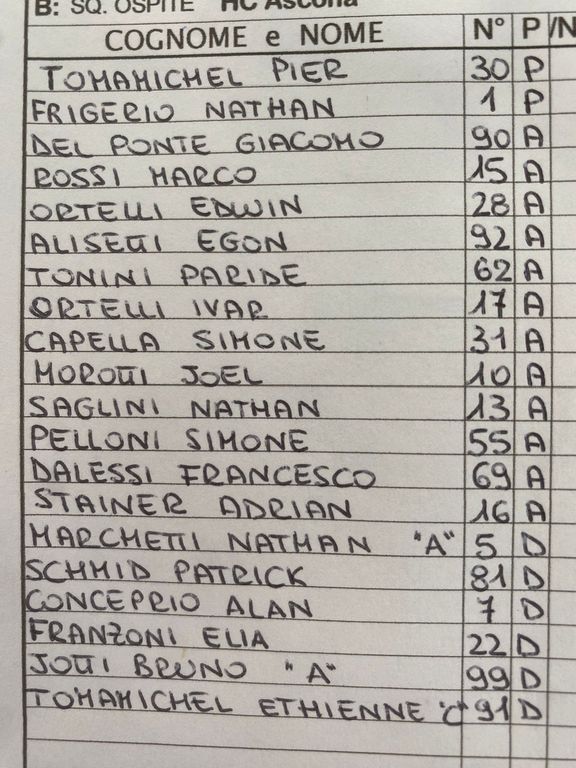 B: SQ. OSPITE HC Ascona
COGNOME e NOME N° P /N
TOMAMICHEL PIER 30 P
FRIGERIO NATHAN 1 P
DEL PONTE GIACOMO 90 A
ROSSI MARCO 15 A
ORTELLI EDWIN 28 A
ALISETTI EGON 92 A
TONINI PARIDE 62 A
ORTELLI IVAR 17 A
CAPELLA SIMONE 31 A
MOROTTI JOEL 10 A
SAGLINI NATHAN 13 A
PELLONI SIMONE 55 A
DALESSI FRANCESCO 69 A
STAINER ADRIAN 16 A
MARCHETTI NATHAN "A" 5 D
SCHMID PATRICK 81 D
CONCEPRIO ALAN 7 D
FRANZONI ELIA 22 D
JOTTI BRUNO "A" 99 D
TOMAMICHEL ETHIENNE "C" 91 D